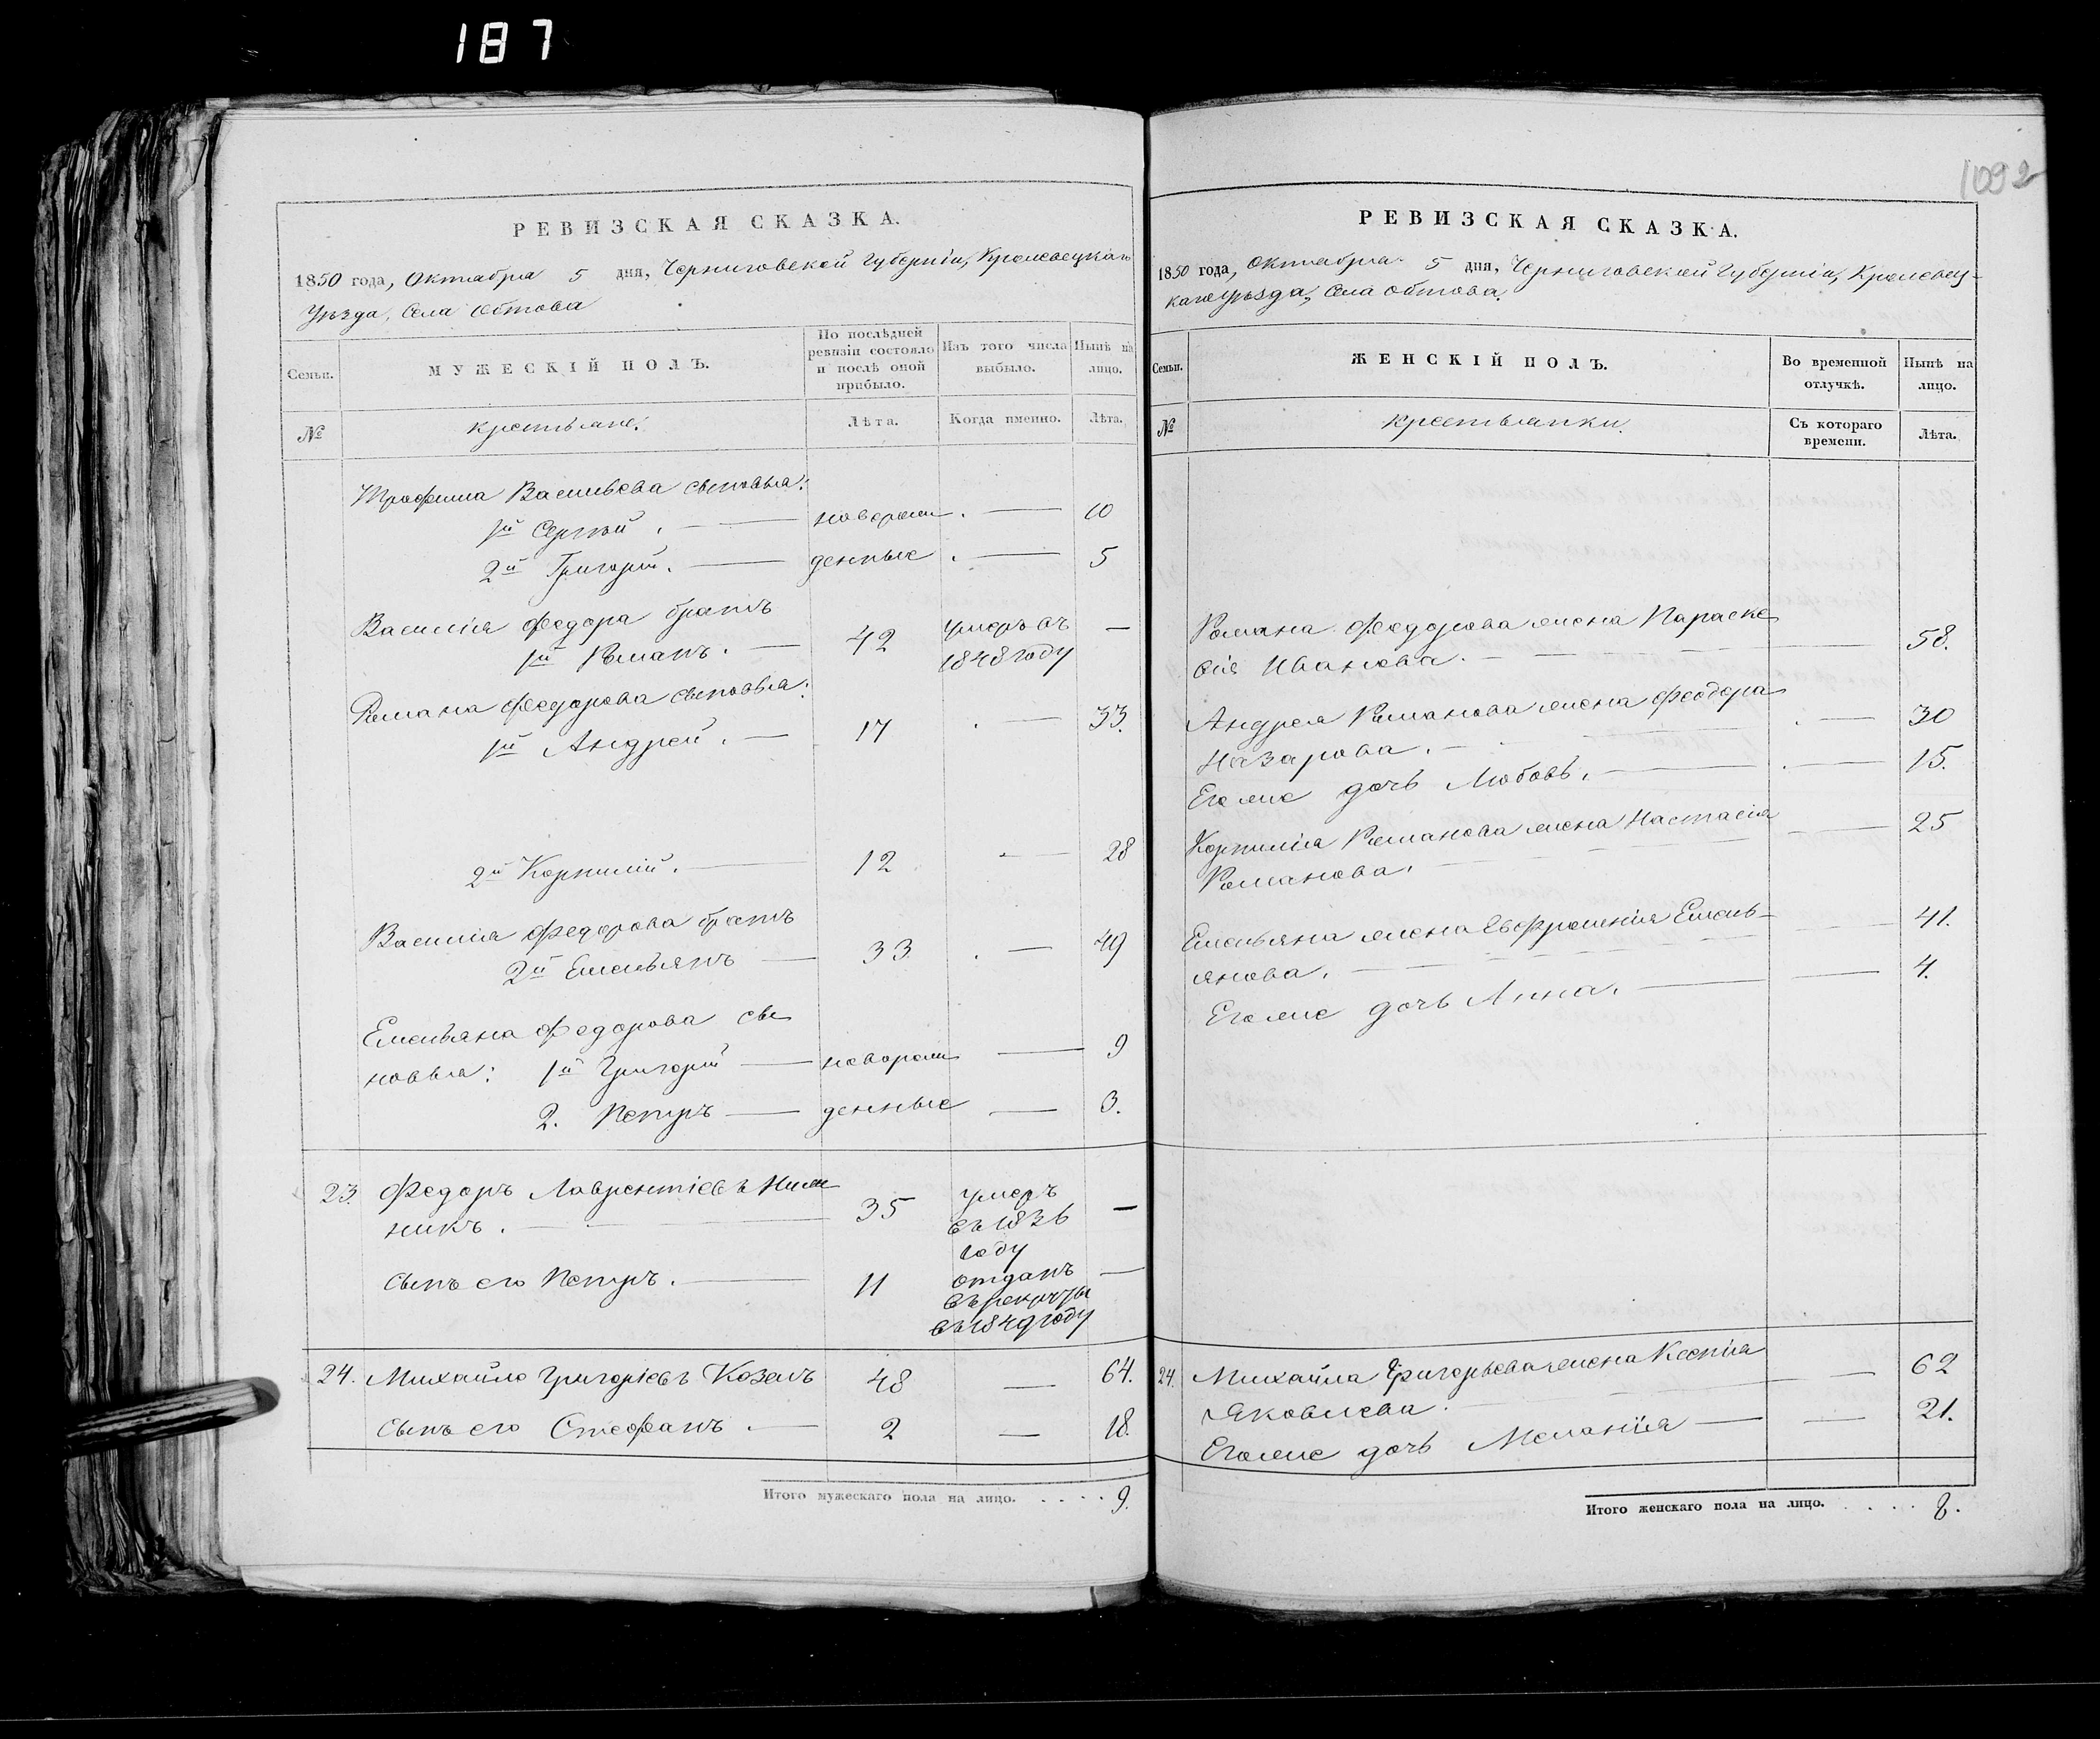 187
1092
РЕВИЗСКАЯ СКАЗКА.
1850 года, Октября 5 дня, Черниговской Губерніи, Кролевецкаго
Уѣзда, Села Обтова
Семьи.
МУЖЕСКІЙ ПОЛЪ.
По послѣдней ревизіи состояло и послѣ оной прибыло.
Изъ того числа выбыло.
Нынѣ на лицо.
№
крестьяне.
Лѣта.
Когда именно.
Лѣта.
Трофима Васильева сыновья:
1й Сергѣй. — новорож . — 10
2й Григорій. — денные . — 5
Василія Федора братъ
1й Романъ. — 42 умеръ въ 1848 году —
Романа Федорова сыновья:
1й Андрей. — 17 . — 33.
2й Корнилій. — 12 . — 28
Василія Федорова братъ
2й Емельянъ — 33 . — 49
Емельяна Федорова сы
новья: 1й Григорій — новорож — 9
2. Петръ — денные — 3.
23. Федоръ Лаврентіевъ
никъ. — 35 умеръ въ 1836 году —
сынъ его Петръ. — 11 отданъ въ рекруты въ 1849 году —
24. Михайло Григоріевъ Козелъ 48 — 64.
сынъ его Стефанъ. — 2 — 18.
Итого мужескаго пола на лицо. . . . . 9.
РЕВИЗСКАЯ СКАЗКА.
1850 года, Октября 5 дня, Черниговской Губерніи, Кролевец-
каго Уѣзда, Села Обтова.
Семьи.
ЖЕНСКІЙ ПОЛЪ.
Во временной отлучкѣ.
Нынѣ на лицо.
№
крестьянки.
Съ котораго времени.
Лѣта.
Романа Федорова жена Параске
вія Иванова. — 58.
Андрея Романова жена Феодора
Назарова. . — 30
Его же дочь Любовь. . — 15.
Корнилія Романова жена Настасія
Романова. — 25
Емельяна жена Евфросинія Емель-
янова. — 41.
Его же дочь Анна. — 4.
24. Михайла Григорьева жена Ксенія
Яковлева. — 62
Его же дочь Меланія — 21.
Итого женскаго пола на лицо. . . . . 8.